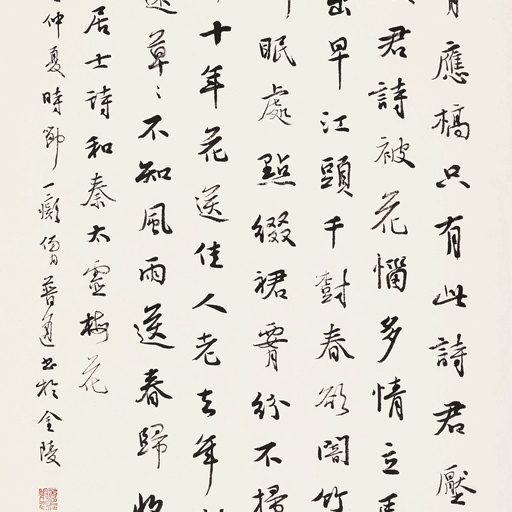 應槁只有此詩君壓
君詩被花惱多情立馬
出早江頭千樹春欲闇竹
眠處點綴裙腰紛不掃
十年花送佳人老去年
草〻不知風雨送春歸收
居士詩和秦太虛梅花
仲夏時節一癡僧普書於金陵